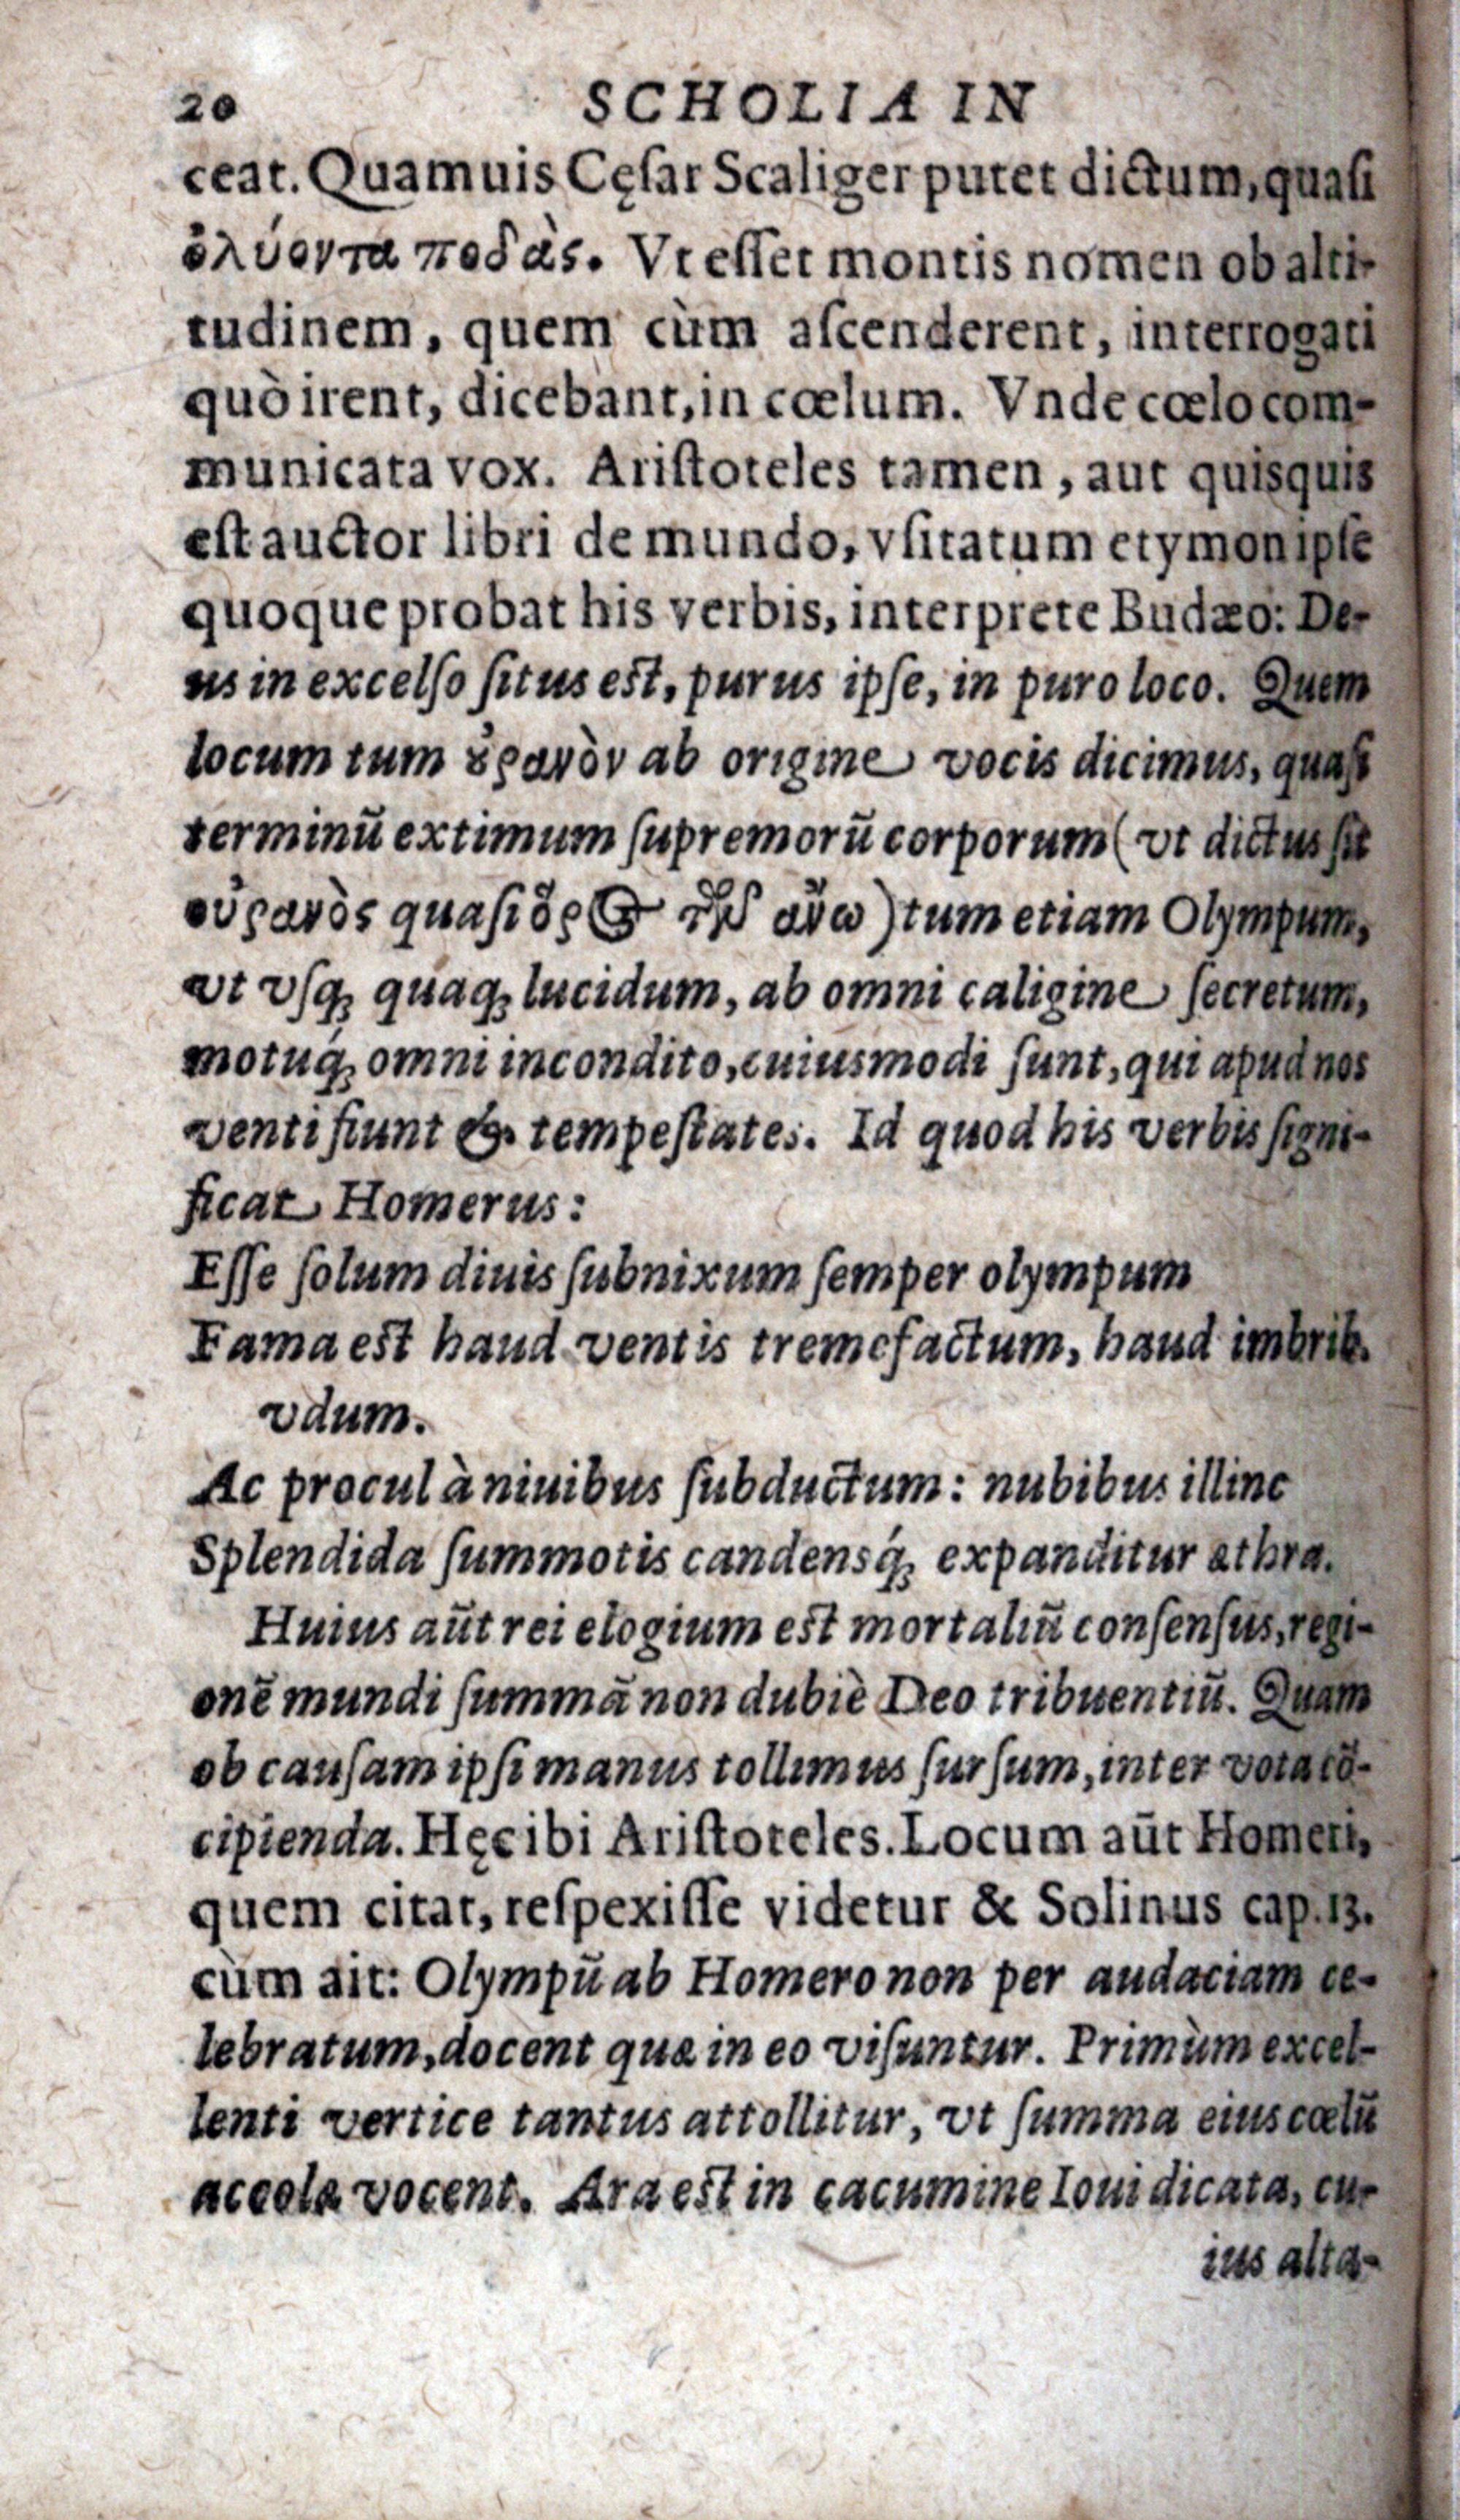 20 SCHOLIA IN
ceat. Quamuis Cęſar Scaliger putet dictum, quaſi
ὀλύοντα ποδὰς. Vt eſſet montis nomen ob alti-
tudinem, quem cùm aſcenderent, interrogati
quò irent, dicebant, in cœlum. Vnde cœlo com-
municata vox. Ariſtoteles tamen, aut quisquis
eſt auctor libri de mundo, vſitatum etymon ipſe
quoque probat his verbis, interprete Budæo: De-
us in excelſo ſitus eſt, purus ipſe, in puro loco. Quem
locum tum ȣ̓ρανὸν ab origine vocis dicimus, quaſi
terminū extimum ſupremorū corporum (vt dictus ſit
οὐρανὸς quaſi ὅρος τῶν ἄνω) tum etiam Olympum,
vt vſq; quaq; lucidum, ab omni caligine ſecretum,
motuq́; omni incondito, cuiusmodi ſunt, qui apud nos
venti fiunt & tempeſtates. Id quod his verbis ſigni-
ficat Homerus:
Eſſe ſolum diuis ſubnixum ſemper olympum
Fama eſt haud ventis tremefactum, haud imbrib.
vdum.
Ac procul à niuibus ſubductum: nubibus illinc
Splendida ſummotis candensq́; expanditur æthra.
Huius aūt rei elogium eſt mortaliū conſenſus, regi-
onē mundi ſummā non dubiè Deo tribuentiū. Quam
ob cauſam ipſi manus tollimus ſurſum, inter vota cō-
cipienda. Hęc ibi Ariſtoteles. Locum aūt Homeri,
quem citat, reſpexiſſe videtur & Solinus cap. 13.
cùm ait: Olympū ab Homero non per audaciam ce-
lebratum, docent quæ in eo viſuntur. Primùm excel-
lenti vertice tantus attollitur, vt ſumma eius cœlū
accolæ vocent. Ara eſt in cacumine Ioui dicata, cu-
ius alta-